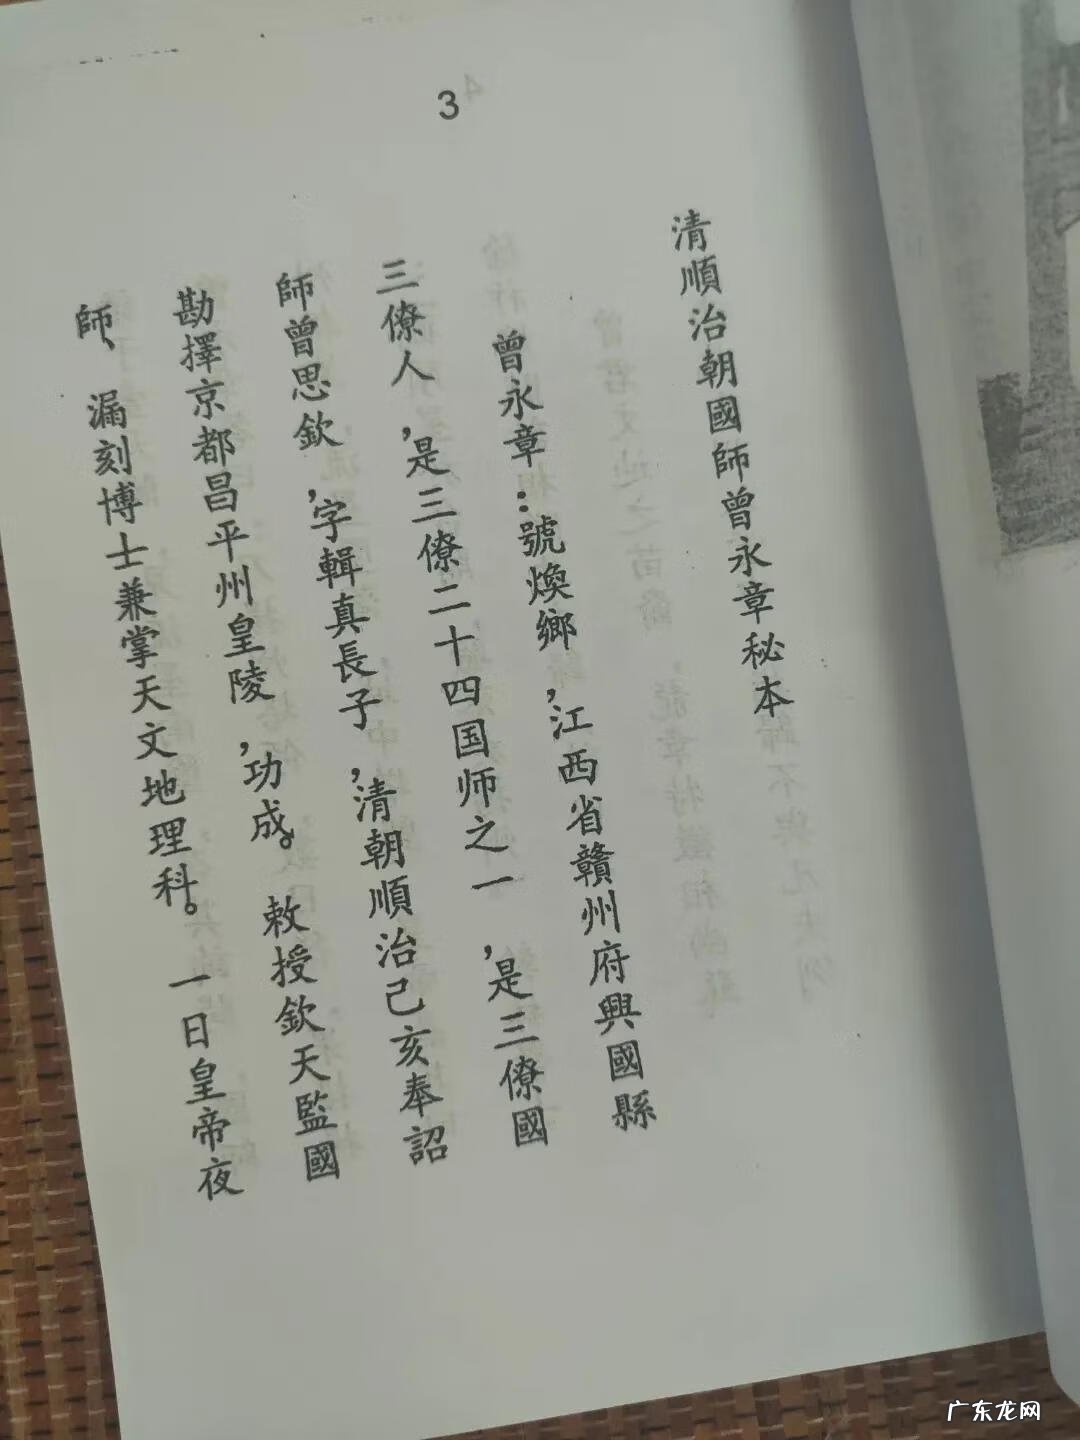 3
清順治朝國師曾永章秘本
曾永章:號煥鄉,江西省贛州府興國縣
三僚人,是三僚二十四国师之一,是三僚國
師曾思欽,字輯真長子,清朝順治己亥奉詔
勘擇京都昌平州皇陵,功成。敕授欽天監國
師、漏刻博士兼掌天文地理科。一日皇帝夜
广东龙网